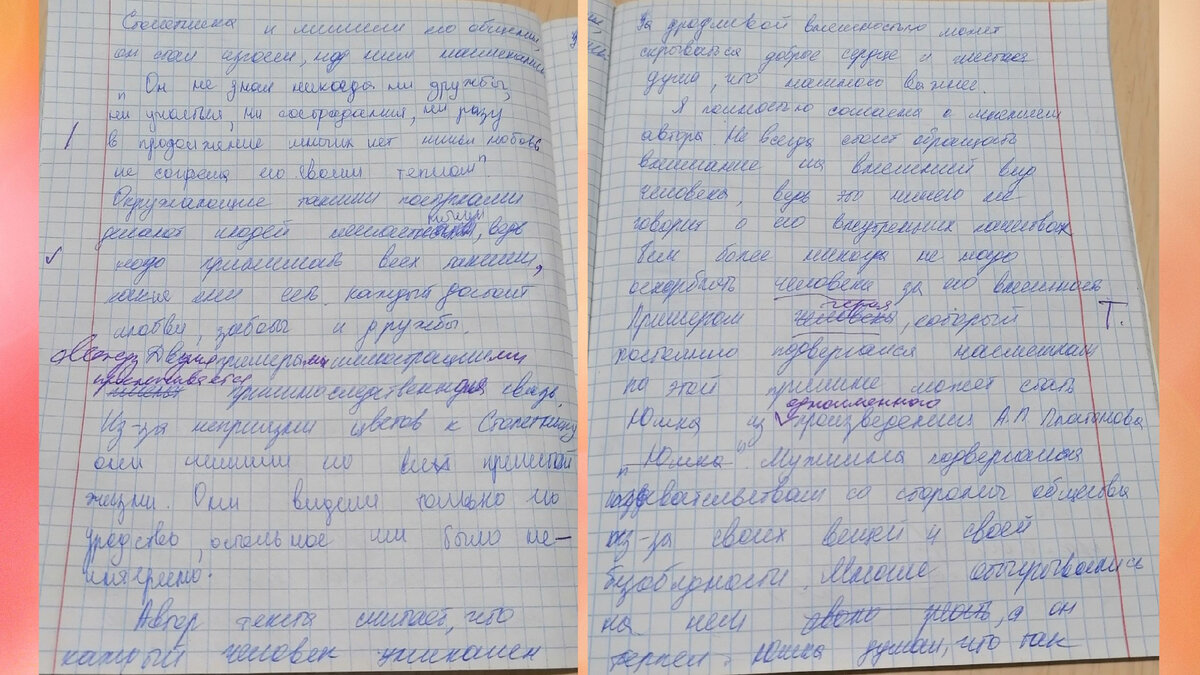 Столетника и лишили его общения,
он стал изгоем, над ним насмехались
„ Он не знал никогда ни дружбы,
ни участья, ни сострадания, ни разу
в продолжение многих лет ничья любовь
не согрела его своим теплом"
Окружающие такими поступками
делают людей несчастными, ведь
надо принимать всех такими,
какие они есть. Каждый достоин
любви, заботы и дружбы.
Между двумя примерами-иллюстрациями
прослеживается причинноследственная связь.
Из-за неприязни цветов к Столетнику
они лишили его всей прошлой
жизни. Они видели только его
уродство, остальное им было не-
интересно.
Автор текста считает, что
каждый человек уникален
За уродливой внешностью может
скрываться доброе сердце и чистая
душа, что намного важнее.
Я полностью согласна с мнением
автора Не всегда стоит обращать
внимание на внешний вид
человека, ведь это ничего не
говорит о его внутренних качествах
Тем более никогда не надо
оскорблять человека за его внешность
Примером героя, который Т.
постоянно подвергался насмешкам
по этой причине может стать
Юшка из одноименного произведения А.П. Платонова
„Юшка". Мужчина подвергался
издевательствам со стороны общества
из-за своих вещей и своей
безобидности. Многие отыгрывались
на нем свою злость, а он
терпел. Юшка думал, что так